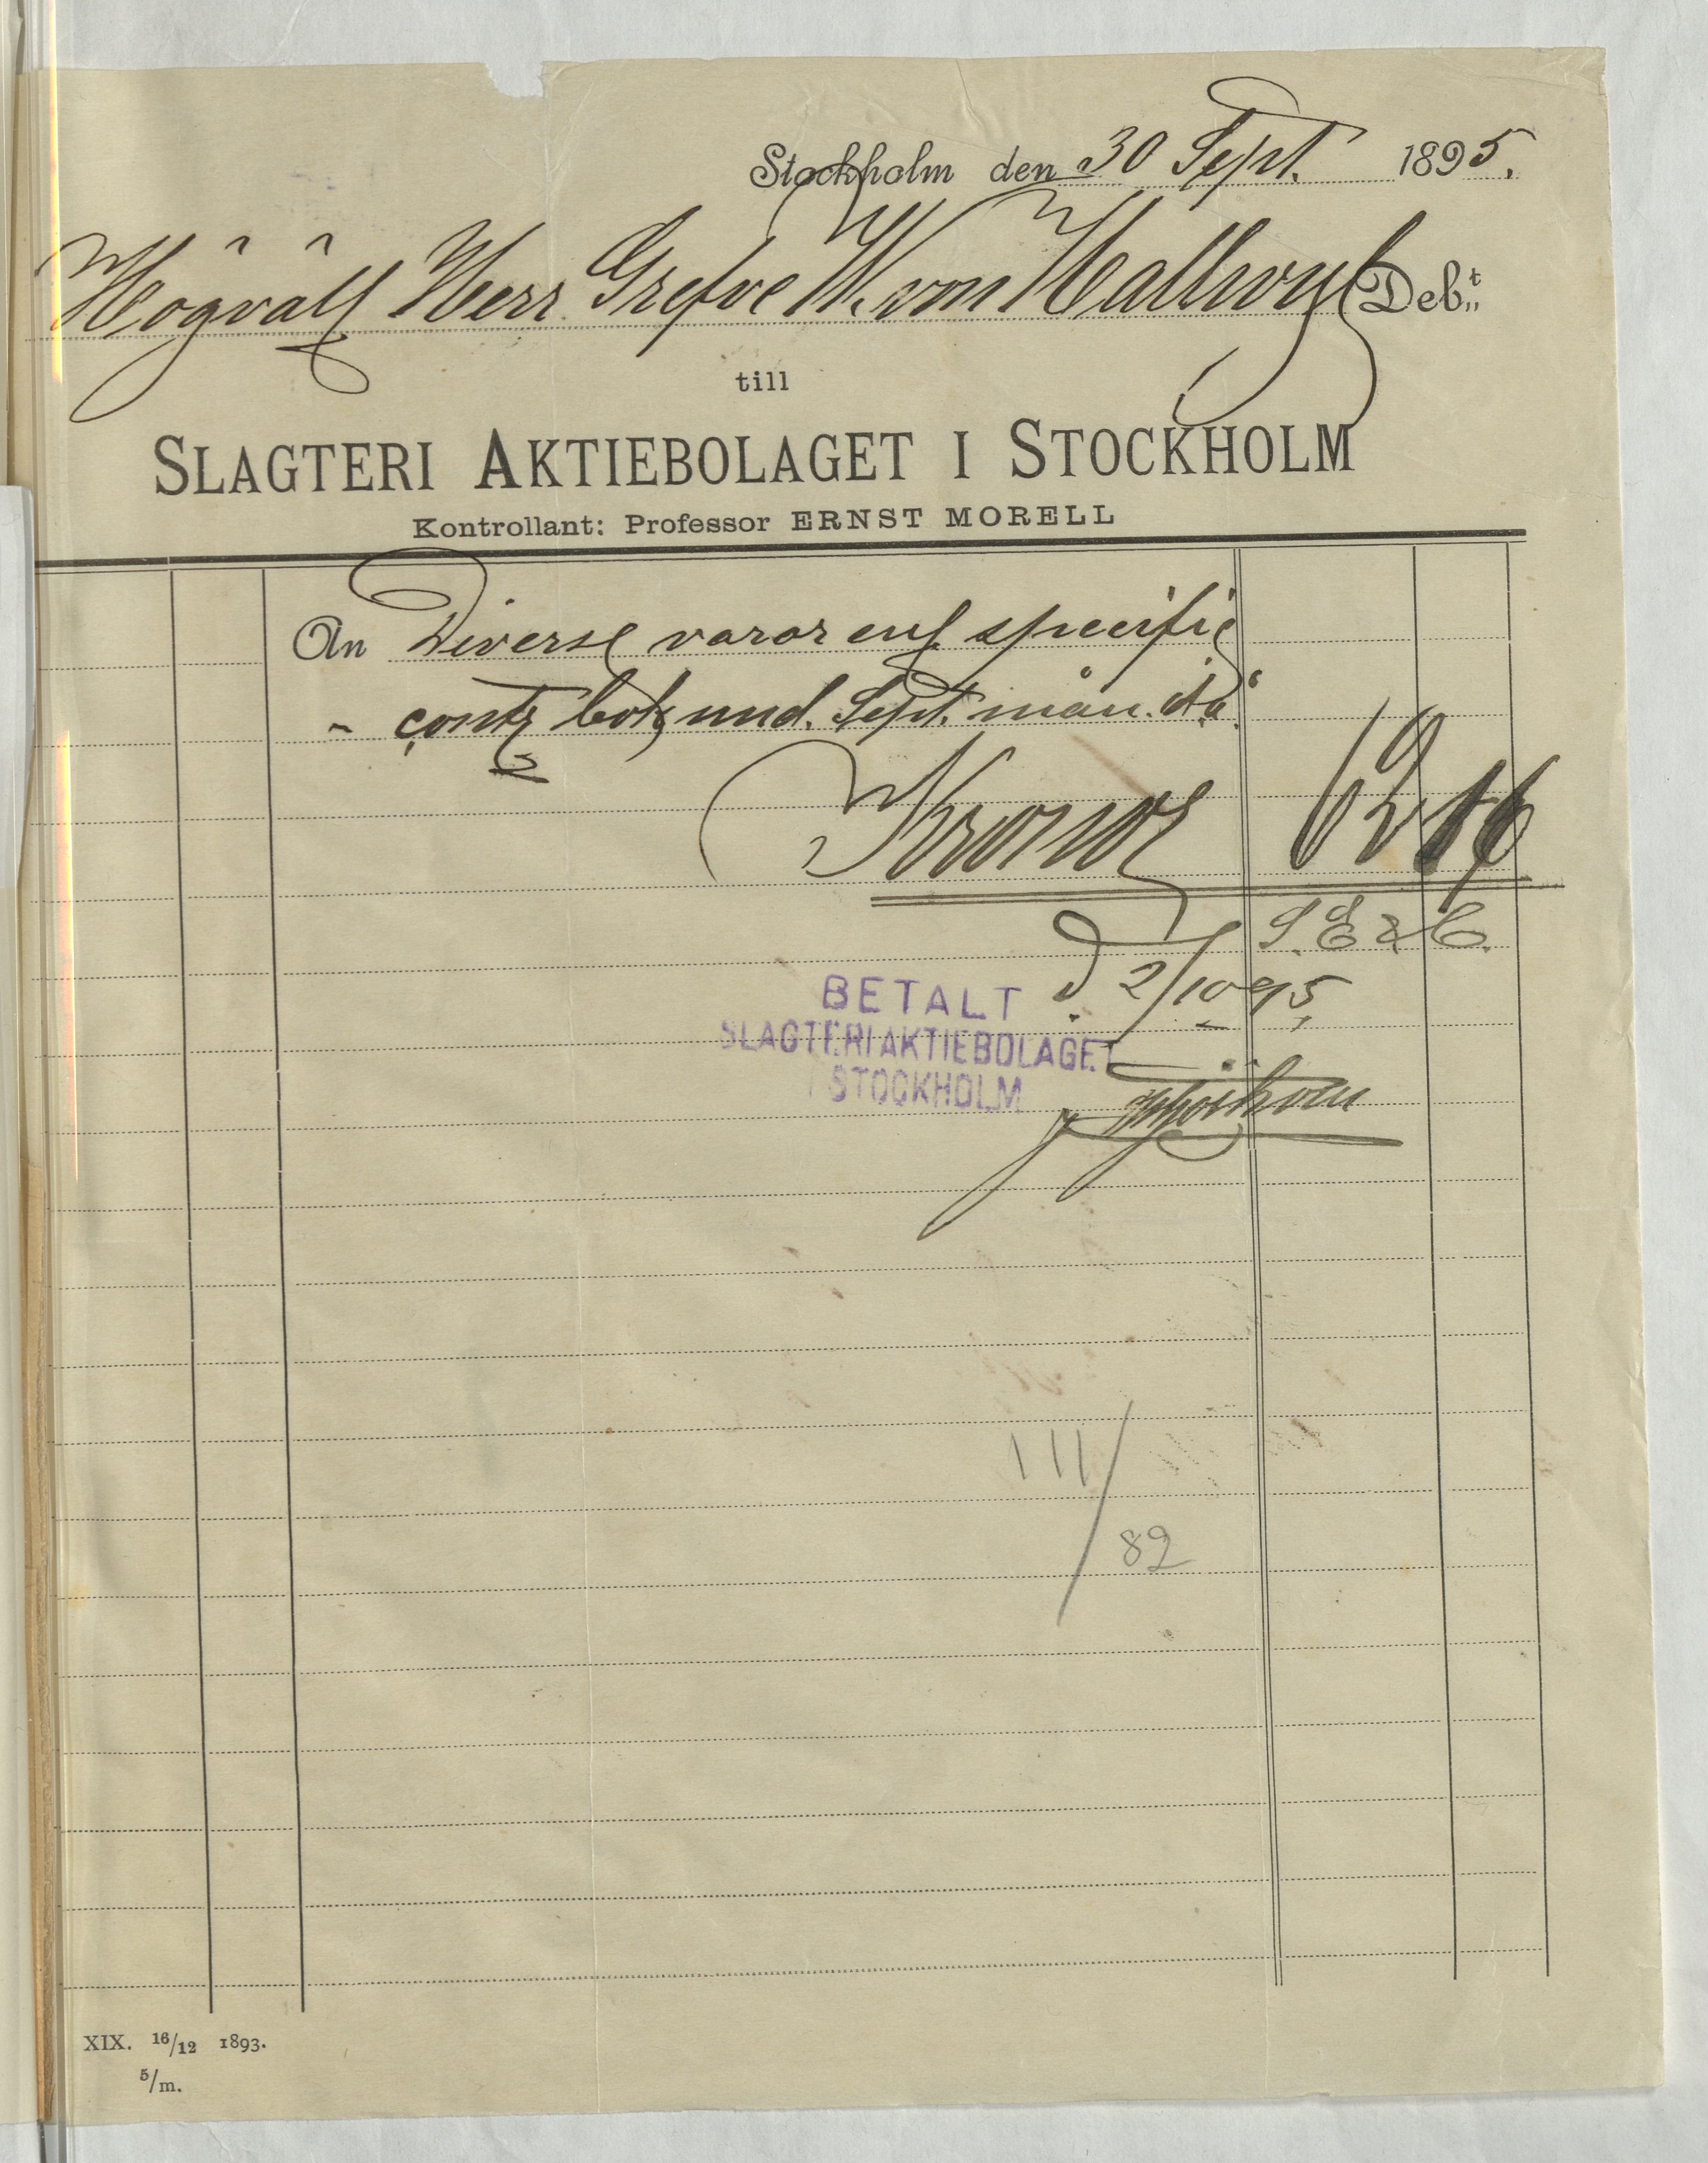 Stockholm den 30 Sept. 1895.
Högväl Herr Grefve W. von Hallwyl Deb:t
till
SLAGTERI AKTIEBOLAGET I STOCKHOLM
Kontrollant: Professor ERNST MORELL
An Diverse varor enl. specific
" contr bok und. Sept. mån. d.å.
Kronor 62 16
S. E & O.
d 2/10 95
BETALT
SLAGTERIAKTIEBOLAGET
I STOCKHOLM
111/82
XIX. 16/12 1893.
5/m.